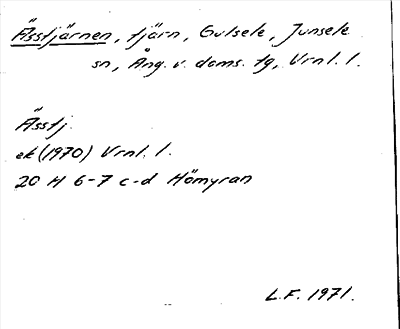 Åsstjärnen, tjärn, Gulsele, Junsele
sn, Ång. v. doms. tg, Vrnl. l.
Ässtj.
ek (1970) Vrnl. l.
20 H 6-7 c-d Hömyran
L.F. 1971.